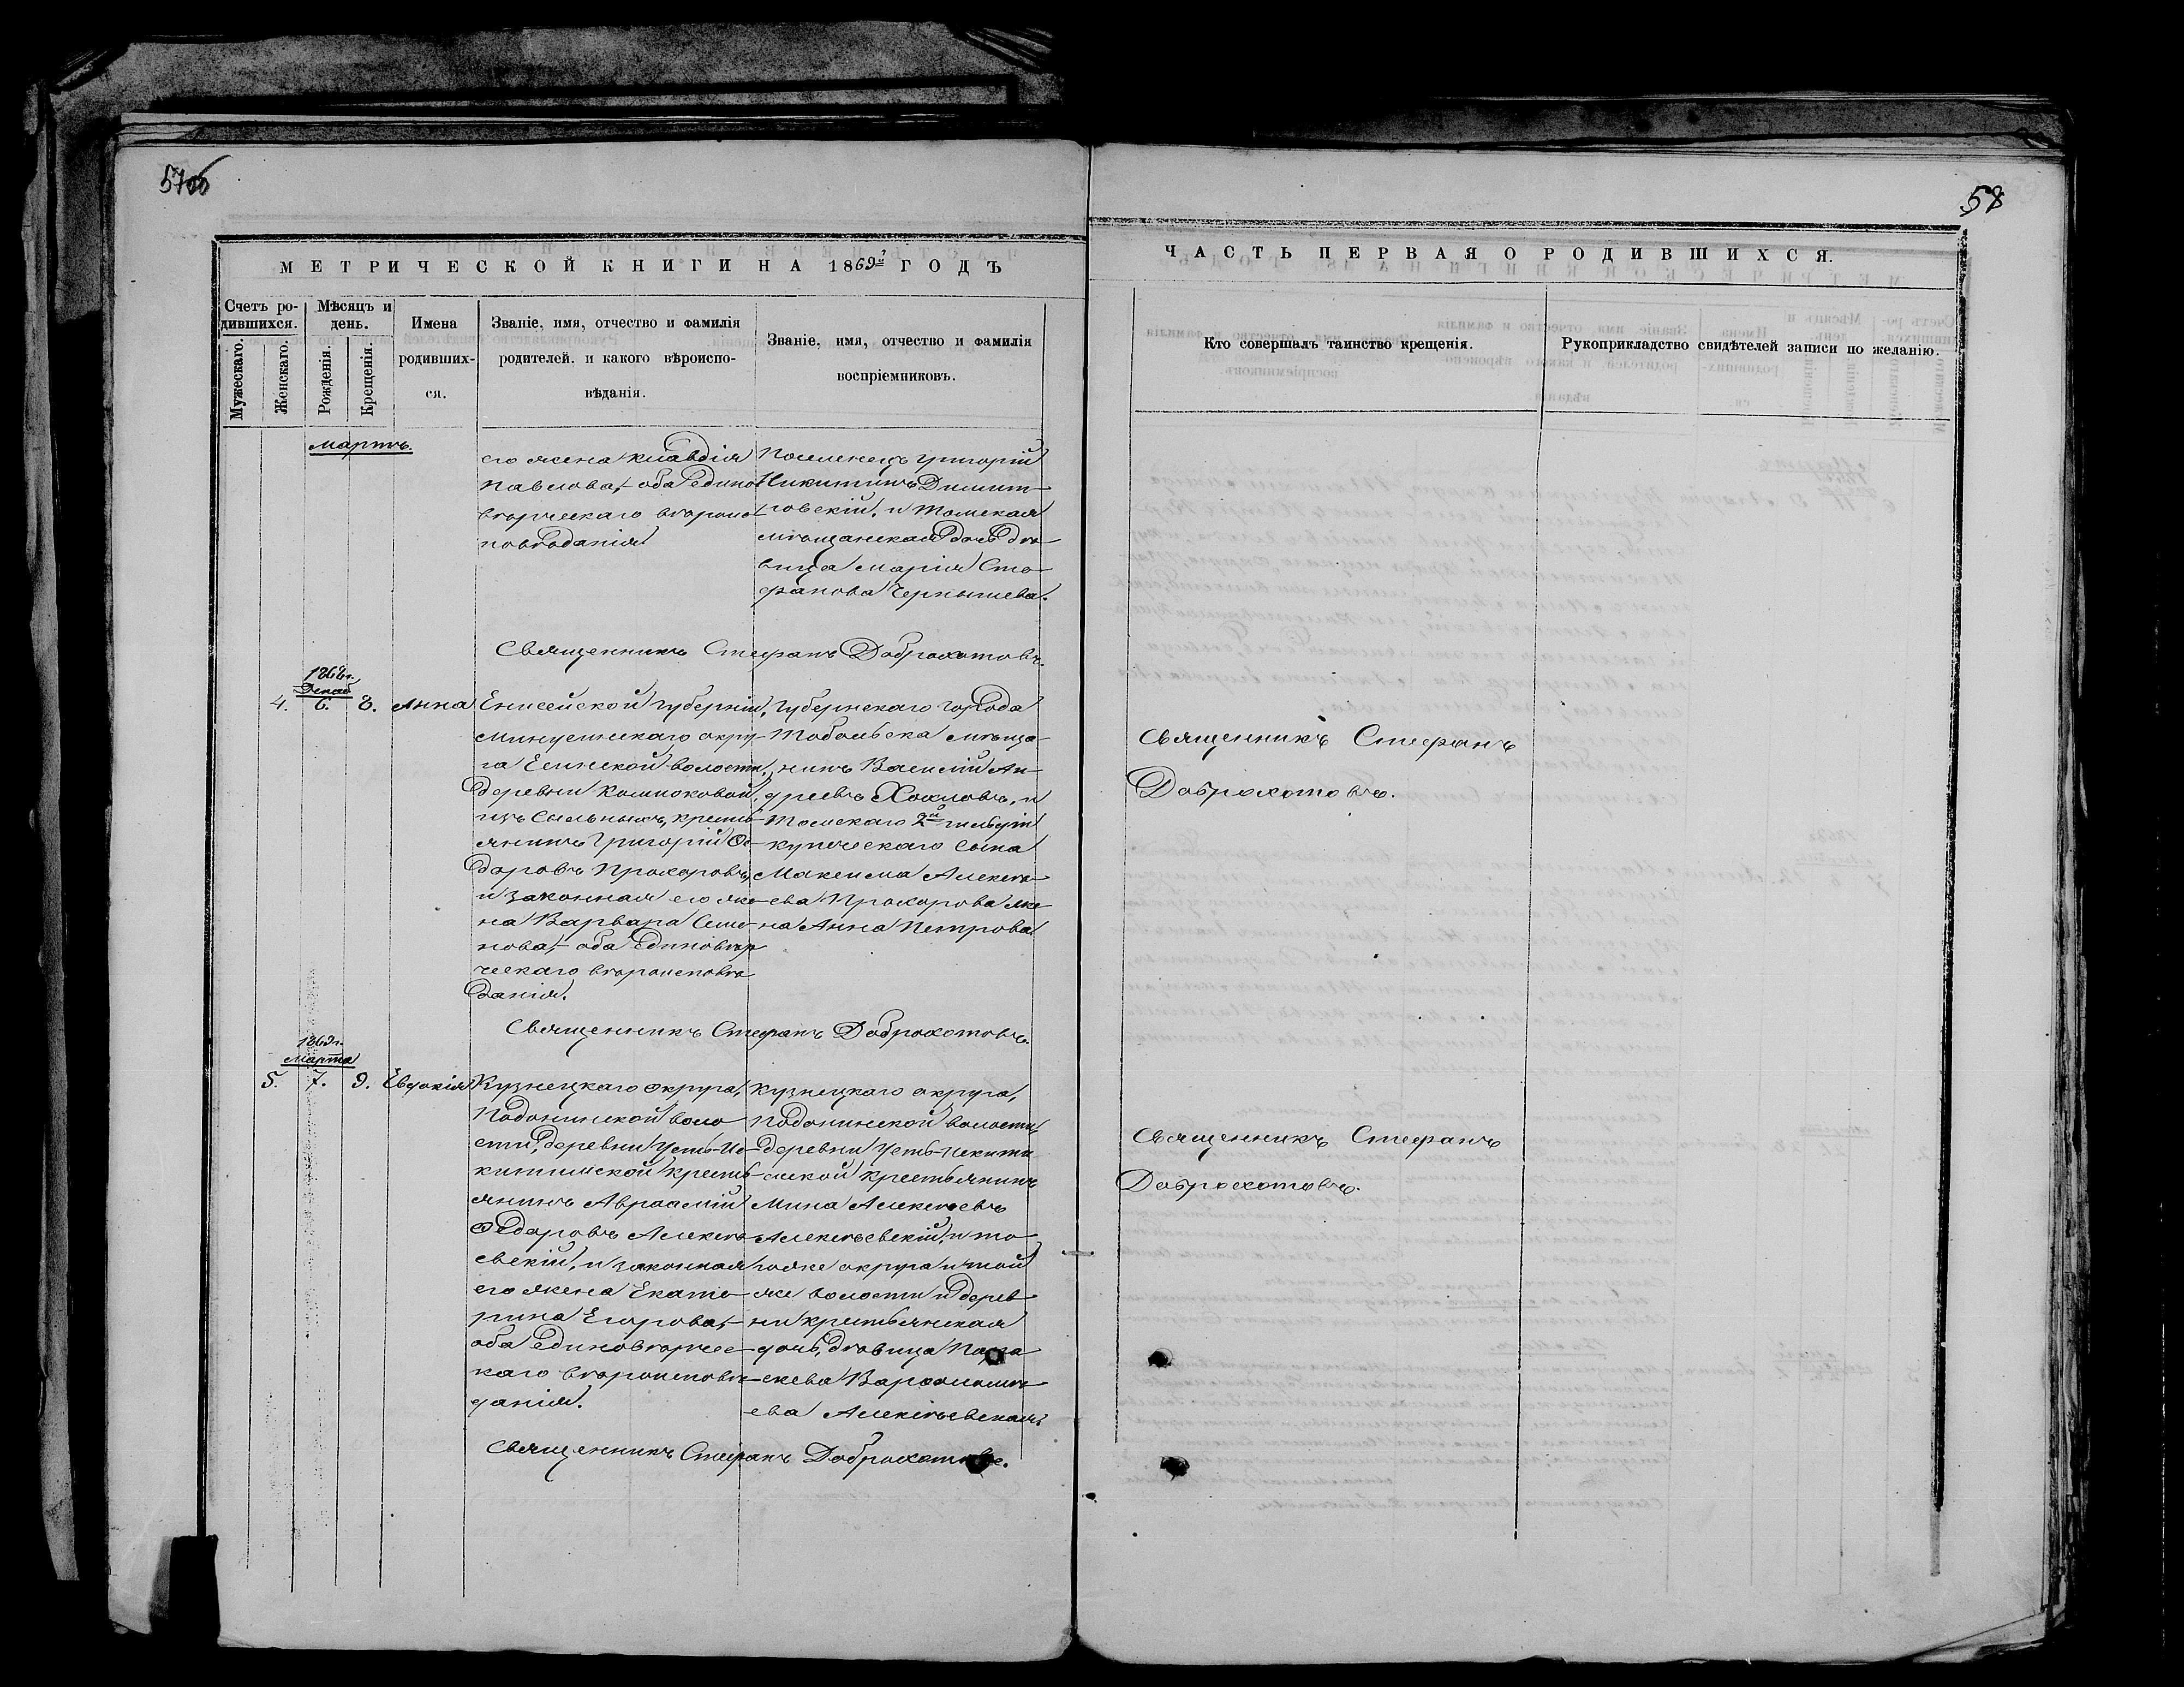 57об
58
МЕТРИЧЕСКОЙ КНИГИ НА 1869й ГОДЪ
Счетъ ро-
дившихся.
Мужескаго.
Женскаго.
Мѣсяцъ и
день.
Рожденія.
Крещенія.
Имена
родивших-
ся.
Званіе, имя, отчество и фамилія
родителей. и какого вѣроиспо-
вѣданія.
Званіе, имя, отчество и фамилія
воспріемниковъ.
мартъ.
его жена Клавдія
Павлова, оба едино
вѣрческаго вѣроис
повѣданія
Поселенецъ Григорій
Никитинъ Димит
ровскій, и Томская
мѣщанская дочь дѣ
вица Марія Сте
фанова Чернышева.
Священникъ Стефанъ Доброхотовъ.
1868г.
Декаб
4. 6. 8. Анна
Енисейской губерніи,
Минусинскаго окру
га Есинской волости,
деревни
изъ Сыльныхъ, кресть
янинъ Григорій Ѳе
доровъ Прохоровъ,
и законная его же
на Варвара Семе
нова, оба единовѣр
ческаго вѣроисповѣ
данія.
Губернскаго города
Тобольска мѣща
нинъ Василій Ан
дреевъ Хохловъ, и
Томскаго 2й гильдіи
купческаго сына
Максима Алексѣ
ева Прохорова же
на Анна Петрова
Священникъ Стефанъ Доброхотовъ.
1869г.
марта
5. 7. 9. Евдокія
Кузнецкаго округа,
Подонинской воло
сти, деревни Усть-Ис
китимской кресть
янинъ Авраамій
Ѳедоровъ Алексѣ
евскій, и законная
его жена Екате
рина Егорова,
оба единовѣрчес
каго вѣроисповѣ
данія.
Кузнецкаго округа,
Подонинской волости,
деревни Усть-Искити
мской крестьянинъ
Мина Алексѣевъ
Алексѣевскій, и то
гоже округа и той
же волости и дерев
ни крестьянская
дочь, дѣвица Пара
скева Варѳоломѣ
ева Алексѣевская.
Священникъ Стефанъ Доброхотовъ.
ЧАСТЬ ПЕРВАЯ О РОДИВШИХСЯ.
Кто совершалъ таинство крещенія.
Рукоприкладство свидѣтелей записи по желанію.
Священникъ Стефанъ
Доброхотовъ.
Священникъ Стефанъ
Доброхотовъ.